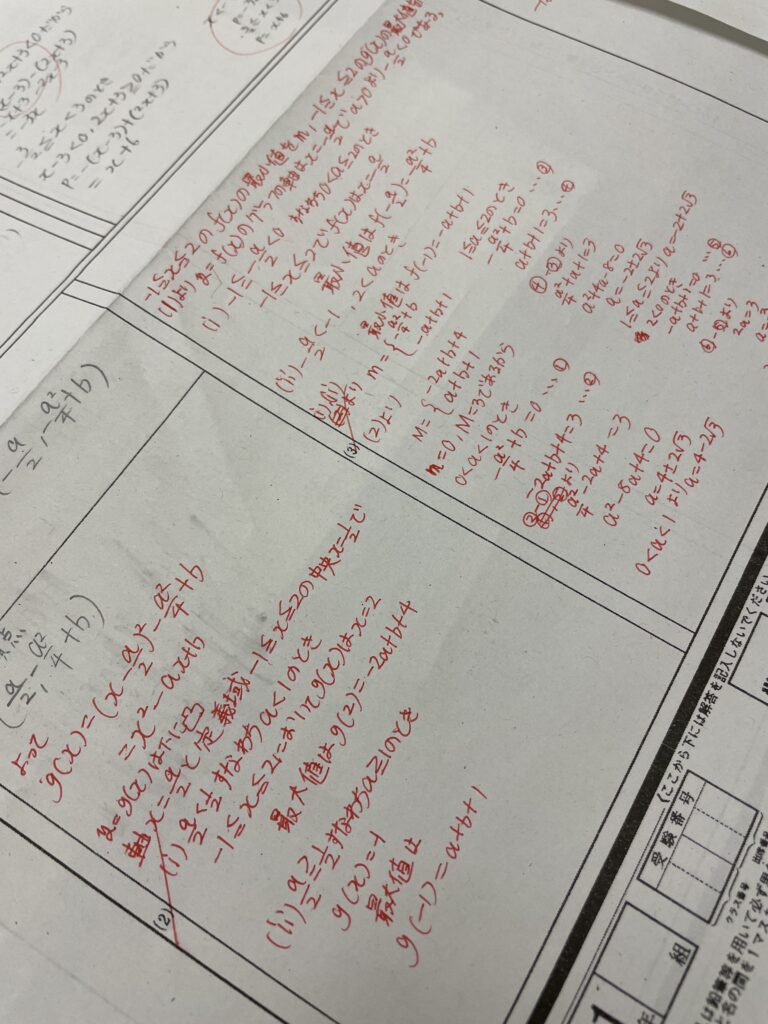 x-3<0, 2x+3≧0だから
P=-(x-3)+(2x+3)
=x+6
(-a/2, -a²/4+b)
頂点
(a/2, -a²/4+b)
よって
g(x)=(x-a/2)²-a²/4+b
=x²-ax+b
(2)
y=g(x)は下に凸
軸x=a/2と定義域-1≦x≦2の中央x=1/2で
(i) a/2<1/2すなわちa<1のとき
-1≦x≦2においてg(x)はx=2
最大値はg(2)=-2a+b+4
(ii) a/2≧1/2すなわちa≧1のとき
g(x)=-1
最大値は
g(-1)=a+b+1
-1≦x≦2のf(x)の最小値をm, -1≦x≦2のg(x)の最大値を
(1)よりy=f(x)のグラフの軸はx=-a/2でa>0より-a/2<0である
(i) -1≦-a/2<0 すなわち0<a≦2のとき
-1≦x≦2でf(x)はx=-a/2
最小値はf(-a/2)=-a²/4+b
(ii) -a/2<-1, 2<aのとき
最小値はf(-1)=-a+b+1
(i)(ii)より
m={-a²/4+b
-a+b+1
(3)
(2)より
M={-2a+b+4
a+b+1
m=0, M=3であるから
0<a<1のとき
-a²/4+b=0…①
-2a+b+4=3…②
②-①より
a²/4-2a+4=3
a²-8a+4=0
a=4±2√3
0<a<1よりa=4-2√3
1≦a≦2のとき
-a²/4+b=0…③
a+b+1=3…④
④-③より
a²/4+a+1=3
a²+4a-8=0
a=-2±2√3
1≦a≦2よりa=-2+2√3
2<aのとき
-a+b+1=0…⑤
a+b+1=3…⑥
⑥-⑤より
2a=3
(ここから下には解答を記入しないでください
受験番号
クラス番号
出席番号
1
年
組
は鉛筆等を用いて必ず用
と名の間を1マス